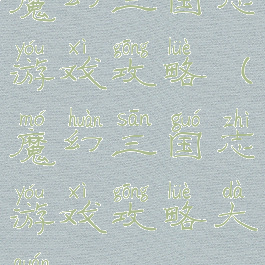 魔 幻 三 国 志
yóu xì gōng lüè
游 戏 攻 略 （
mó huàn sān guó zhì
魔 幻 三 国 志
yóu xì gōng lüè dà
游 戏 攻 略 大
quán